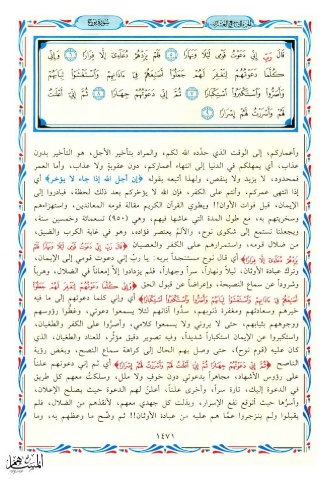 سورة نوح
قَالَ رَبِّ إِنِّي دَعَوْتُ قَوْمِي لَيْلًا وَنَهَارًا ۝٥ فَلَمْ يَزِدْهُمْ دُعَائِي إِلَّا فِرَارًا ۝٦ وَإِنِّي
كُلَّمَا دَعَوْتُهُمْ لِتَغْفِرَ لَهُمْ جَعَلُوا أَصَابِعَهُمْ فِي آذَانِهِمْ وَاسْتَغْشَوْا ثِيَابَهُمْ
وَأَصَرُّوا وَاسْتَكْبَرُوا اسْتِكْبَارًا ۝٧ ثُمَّ إِنِّي دَعَوْتُهُمْ جِهَارًا ۝٨ ثُمَّ إِنِّي أَعْلَنْتُ
لَهُمْ وَأَسْرَرْتُ لَهُمْ إِسْرَارًا ۝٩
وأعماركم، إلى الوقت الذي حدَّده الله لكم، والمراد بتأخير الأجل، هو التأخير بدون
عذاب، أي يمهلكم في الدنيا إلى انتهاء أعماركم، دون عقوبةٍ ولا عذاب، وأما العمر
فمحدود، لا يزيد ولا ينقص، ولهذا أتبعه بقوله ﴿إن أجل الله إذا جاء لا يؤخر﴾ أي
إذا انتهى عمركم، وأنتم على الكفر، فإن الله لا يؤخركم بعد ذلك لحظة، فبادروا إلى
الإيمان، قبل فوات الأوان!! ويطوي القرآن الكريم مقالة قومه المعاندين، واستهزاءهم
وسخريتهم به، مع طول المدة التي عاشها فيهم، وهي (٩٥٠) تسعمائة وخمسين سنة،
ويجعلنا نستمع إلى شكوى نوح، والألم يعتصر فؤاده، وهو في غاية الكرب والضيق،
من ضلال قومه، واستمرارهم على الكفر والعصيان ﴿قَالَ رَبِّ إِنِّي دَعَوْتُ قَوْمِي لَيْلًا وَنَهَارًا فَلَمْ
يَزِدْهُمْ دُعَائِي إِلَّا فِرَارًا﴾ أي قال نوح مستنجداً بربه: يا ربّ إني دعوت قومي إلى الإيمان،
وترك عبادة الأوثان، ليلاً ونهاراً، سراً وجهاراً، فلم يزدادوا إلاَّ إمعاناً في الضلال، وهرباً
وشروداً عن سماع النصيحة، وإعراضاً عن قبول الحق ﴿وَإِنِّي كُلَّمَا دَعَوْتُهُمْ لِتَغْفِرَ لَهُمْ جَعَلُوا
أَصَابِعَهُمْ فِي آذَانِهِمْ وَاسْتَغْشَوْا ثِيَابَهُمْ وَأَصَرُّوا وَاسْتَكْبَرُوا اسْتِكْبَارًا﴾ أي وإني كلما دعوتهم إلى ما فيه
خيرهم وسعادتهم ومغفرة ذنوبهم، سدُّوا آذانهم لئلا يسمعوا دعوتي، وغطَّوا رؤوسهم
ووجوههم بثيابهم، حتى لا يروني ولا يسمعوا كلامي، وأصرُّوا على الكفر والطغيان،
واستكبروا عن الإيمان استكباراً شديداً، وفيه تصوير دقيق مؤثِّر، للعناد والطغيان، الذي
كان عليه (قوم نوح)، حتى وصل بهم الحال إلى كراهة سماع النصح، وبغض رؤية
الناصح ﴿ثُمَّ إِنِّي دَعَوْتُهُمْ جِهَارًا ثُمَّ إِنِّي أَعْلَنْتُ لَهُمْ وَأَسْرَرْتُ لَهُمْ إِسْرَارًا﴾ أي ثم إني دعوتهم علناً
على رؤوس الأشهاد، مجاهراً بدعوتي دون خوفٍ ولا ملل، وسلكتُ معهم كل طريق
في الدعوة إليك، تارة سراً، وأخرى علناً، أعلنُ لهم الدعوة حيث يصلح الإعلان،
وأسرُّها حيث أتوقع نفع الإسرار، وبذلت كل جهدي معهم، لأنقذهم من الضلال، فلم
يقبلوا ولم ينزجروا عمَّا هم عليه من عبادة الأوثان!! ثم وضَّح ما وعظهم به، وما
١٤٧١